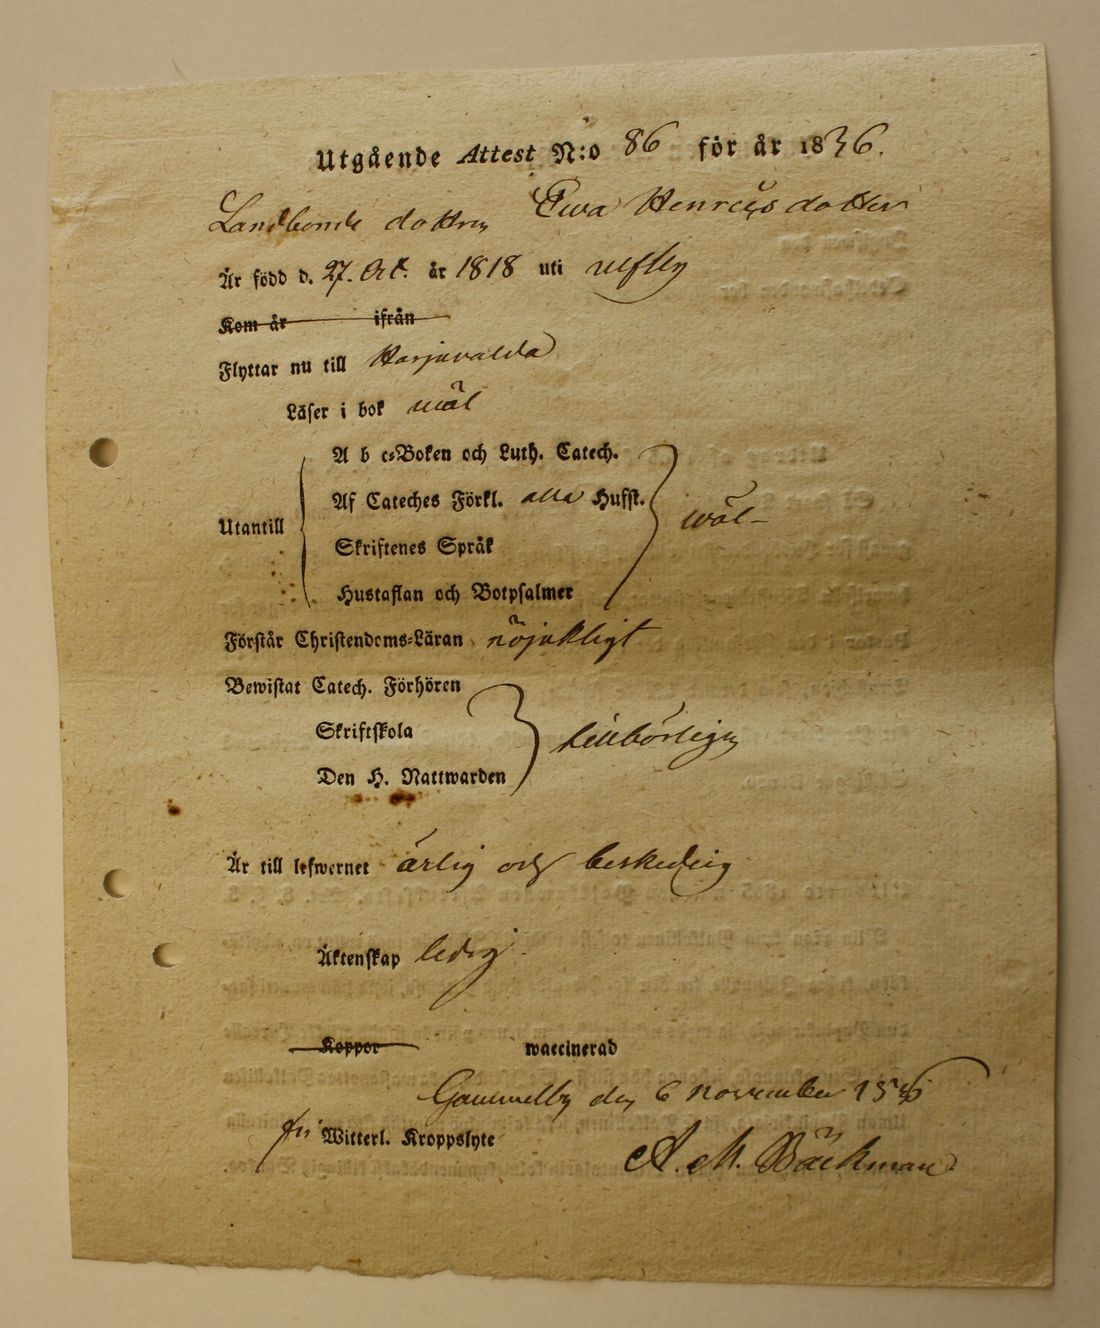 Utgående Attest N:o 86 för år 1836.
Landbonde dottren Ewa Henricsdotter
Är född d. 27. Oct. år 1818 uti Ulfsby
Kom år ifrån
Flyttar nu till Harjavalda
Läser i bok wäl
A b c-Boken och Luth. Catech.
Af Cateches Förkl. alla Hufst.
Utantill wäl
Skriftenes Språk
Hustaflan och Botpsalmer
Förstår Christendoms-Läran nöjakligt
Bewistat Catech. Förhören
Skriftskola behörigen
Den H. Nattwarden
Är till lefwernet ärlig och beskedlig
Äktenskap ledig
Koppor waccinerad
Gammelby den 6 November 1836
fri Witterl. Kroppslyte
A. M. Bäckman